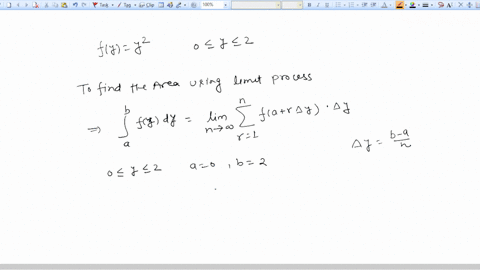 f(y) = y² 0 ≤ y ≤ 2
To find the Area using limit process
⇒ ∫ₐᵇ f(y) dy = lim n→∞ ∑ r=1 n f(a+rΔy) · Δy
Δy = b-a/n
0 ≤ y ≤ 2 a=0 , b=2